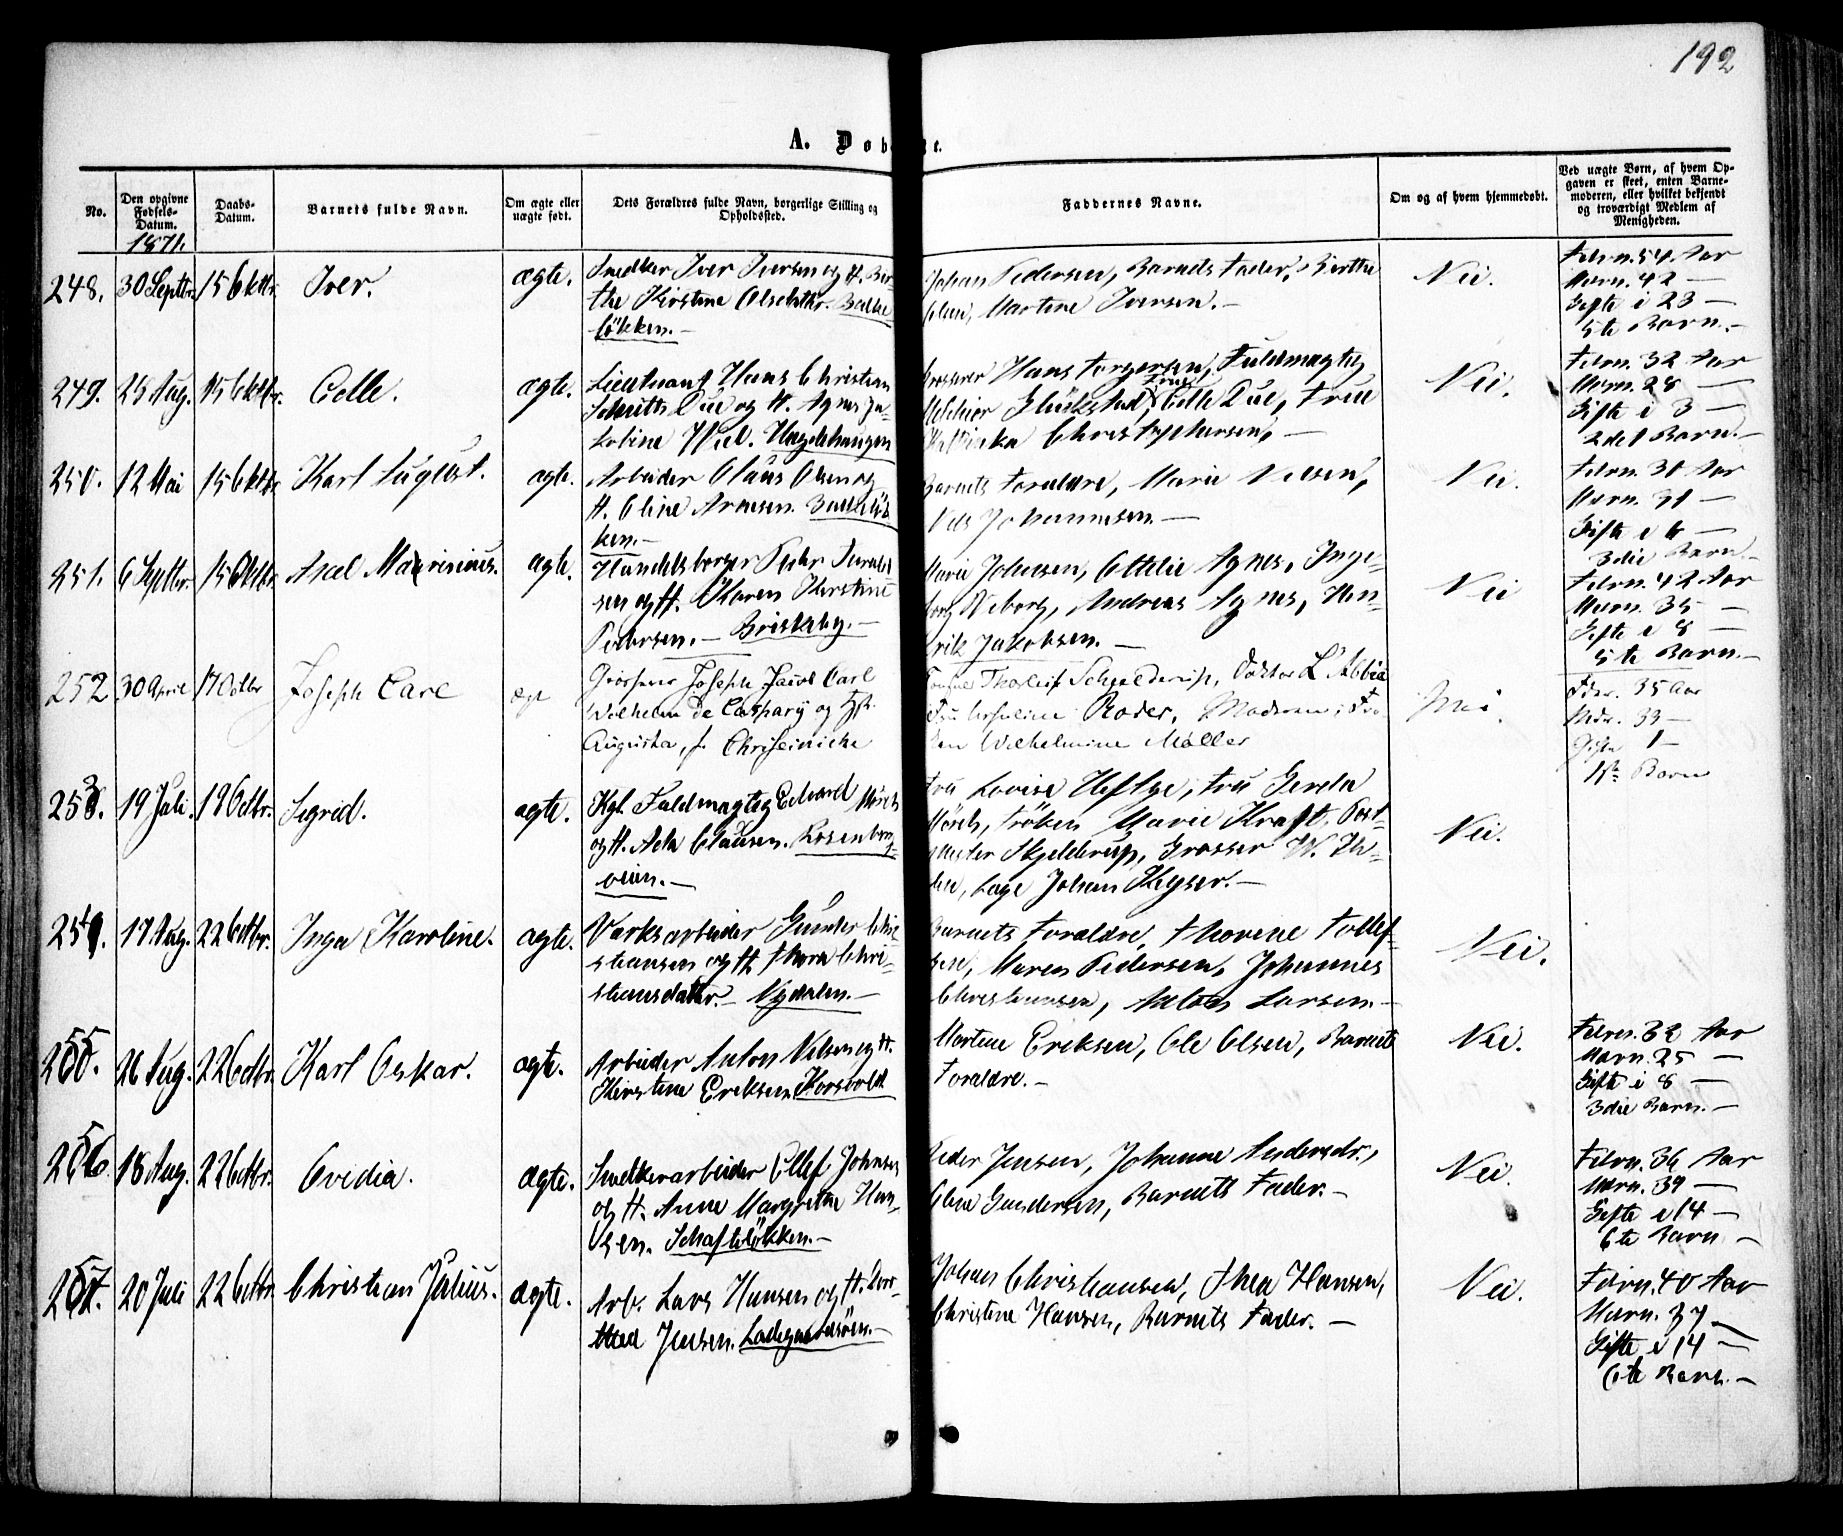 192
A. Døbte.
No.
Den opgivne Fødsels-Datum.
Daabs-Datum.
Barnets fulde Navn.
Om ægte eller uægte født.
Dets Forældres fulde Navn, borgerlige Stilling og Opholdssted.
Faddernes Navne.
Om og af hvem hjemmedøbt.
Ved uægte Børn, af hvem Opgaven er skeet, enten Barnemoderen, eller hvilket bekjendt og troværdigt Medlem af Menigheden.
1871.
248. 30 Septbr. 15 Oktbr. Iver. ægte.
Snedker Iver Iversen og H. Ber-
the Kirstine Olsdatter. Balke
løkken.
Johan Pedersen, Barnets Fader, Birthe
Olsen, Martine Iversen.
Nei.
Fdrn. 54 Aar
Mdrn. 42 —
Gifte i 23 —
5te Barn.
249. 25 Aug. 15 Oktbr. Celle. ægte.
Lieutnant Hans Christian
Schmitts Due og H. Agnes Ja-
kobine Hiel. Hægdehaugen
Grosserer Hans Torgersen, Fuldmægtig
Melchior Glückstad, Frue Celle Due, Frue
Christophersen,
Nei.
Fdrn. 32 Aar
Mdrn. 28 —
Gifte i 3 —
2det Barn.
250. 12 Mai 15 Oktbr. Karl August. ægte.
Arbeider Olaus Olsen og
H. Oline Arnesen. Balkeløk
ken.
Barnets Forældre, Marie Nilsen,
Nils Johannesen.
Nei.
Fdrn. 31 Aar
Mdrn. 31 —
Gifte i 6 —
3die Barn.
251. 6 Septbr. 15 Oktbr. Axel Mauritius. ægte.
Handelsborger Peder
sen og H. Karen Kirstine
Pedersen. Briskeby.
Marie Johnsen, Ottilie Agnes, Inge-
borg Neborg, Andreas Agnes, Hen-
rik Jakobsen.
Nei
Fdrn. 42 Aar
Mdrn. 35 —
Gifte i 8 —
5te Barn.
252 30 April 17 Octbr Joseph Carl ægt
Grosserer Joseph Jacob Carl
Wilhelm de Caspary og H.
Augusta, f. Chrifeinicke
Thorleif Schjelderup, Doktor L'Abbée
Fru Roder, Madame
Wilhelmine Møller
Nei.
Fdr. 35 Aar
Mdr. 33 —
Gifte 1 —
1ste Barn
253. 19 Juli. 19 Octbr. Sigrid. ægte.
Kgl. Fuldmægtig Edvard Mörch
og H. Ada Clausen. Rosenborg
veien.
Fru Lovise Heftye, Fru Gerda
Mörch, Frøken Marie Kraft, Post-
mester Skjelderup, Grosser W.
Læge Johan Keyser.
Nei.
254. 17 Aug. 22 Octbr. Inga Karoline. ægte.
Værksarbeider Gunder Chri-
stiansen og H. Thora Chri-
stiansdatter. Nydalen.
Barnets Forældre, Thorine Tollef-
sen, Maren Pedersen, Johannes
Christiansen, Anton Larsen.
Nei.
255. 26 Aug. 22 Octbr. Karl Oskar. ægte.
Arbeider Anton Nilsen og H.
Kirstine Eriksen. Korsvold
Martine Eriksen, Ole Olsen, Barnets
Forældre.
Nei.
Fdrn. 32 Aar
Mdrn. 25 —
Gifte i 8 —
3die Barn.
256. 18 Aug. 22 Octbr. Ovidia. ægte.
Snedkerarbeider Ellef Johnsen
og H. Anne Margrethe Han-
sen. Schafteløkken.
Peder Jensen, Johanne Andersdr.,
Oline Gundersen, Barnets Fader.
Nei.
Fdrn. 36 Aar
Mdrn. 39 —
Gifte i 14 —
6te Barn
257. 20 Juli 22 Octbr. Christian Julius. ægte.
Arb. Lars Hansen og H. Dort-
hea Jensen. Ladegaardsøen.
Johan Christiansen, Thea Hansen,
Christine Hansen, Barnets Fader.
Nei.
Fdrn. 40 Aar
Mdrn. 37
Gifte i 14 —
6te Barn.